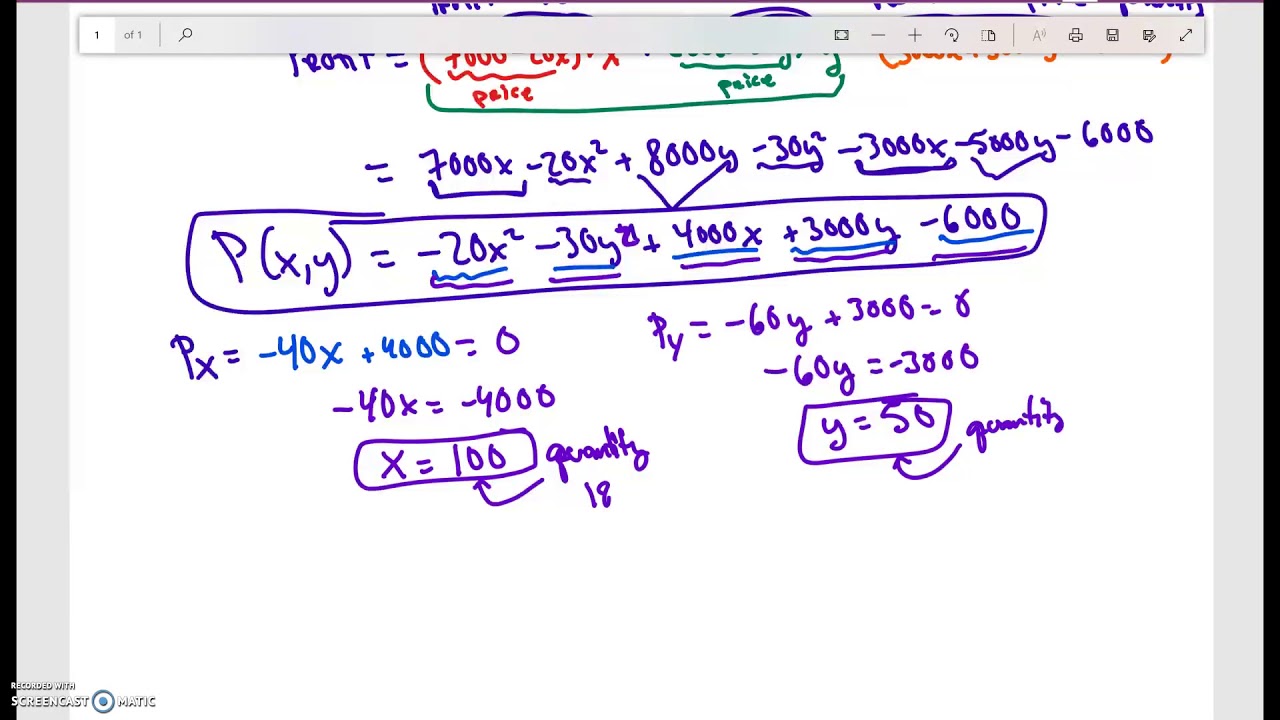 1 of 1
= (7000-20x)·x
price price
= 7000x -20x² + 8000y -30y² -3000x -5000y -6000
P(x,y) = -20x² -30y² + 4000x +3000y -6000
Px = -40x +4000 = 0
-40x = -4000
x = 100 quantity
18
Py = -60y +3000 = 0
-60y = -3000
y = 50 quantity
RECORDED WITH
SCREENCAST MATIC